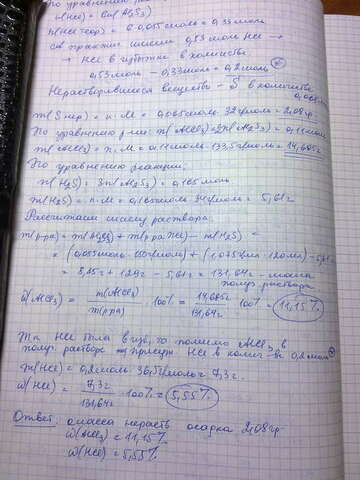 По уравнению реак
n(HCl) = 6n(Al2S3)
n(HCl теор) = 6·0,055моль = 0,33моль
0,53моль HCl →
→ HCl в избытке в количестве
0,53моль - 0,33моль = 0,2моль
Нерастворившееся вещество - S в количестве
0,065моль
m(S нер) = n·M = 0,065моль·32г/моль = 2,08гр.
По уравнению р-ии: n(AlCl3)=2n(Al2S3)=0,11моль
m(AlCl3) = n·M = 0,11моль·133,5г/моль = 14,685г
По уравнению реакции:
n(H2S) = 3n(Al2S3) = 0,165моль
m(H2S) = n·M = 0,165моль·34г/моль = 5,61г
Рассчитаем массу раствора:
m(р-ра) = m(Al2S3) + m(р-ра HCl) - m(H2S) =
= (0,055моль·150г/моль) + (1,075г/мл·120мл) - 5,61=
= 8,25г + 129г - 5,61г = 131,64г - масса
получ. раствора
ω(AlCl3) = m(AlCl3)/m(р-ра) · 100% = 14,685г/131,64г · 100% = 11,15%
Т.к HCl была в изб, то помимо AlCl3 в
получ. растворе HCl в колич-ве 0,2моль
m(HCl) = 0,2моль·36,5г/моль = 7,3г.
ω(HCl) = 7,3г/131,64г · 100% = 5,55%
Ответ: масса нераств осадка 2,08гр.
ω(AlCl3) = 11,15%
ω(HCl) = 5,55%